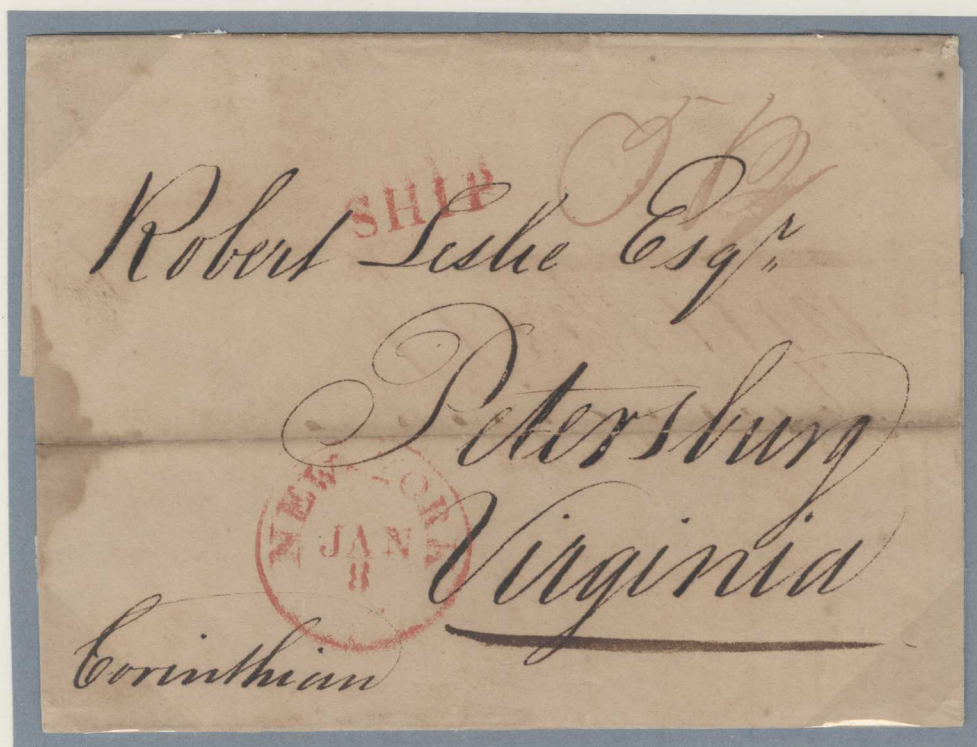 SHIP
Robert Leslie Esqr.
Petersburg
Virginia
NEW YORK
JAN
8
Corinthian